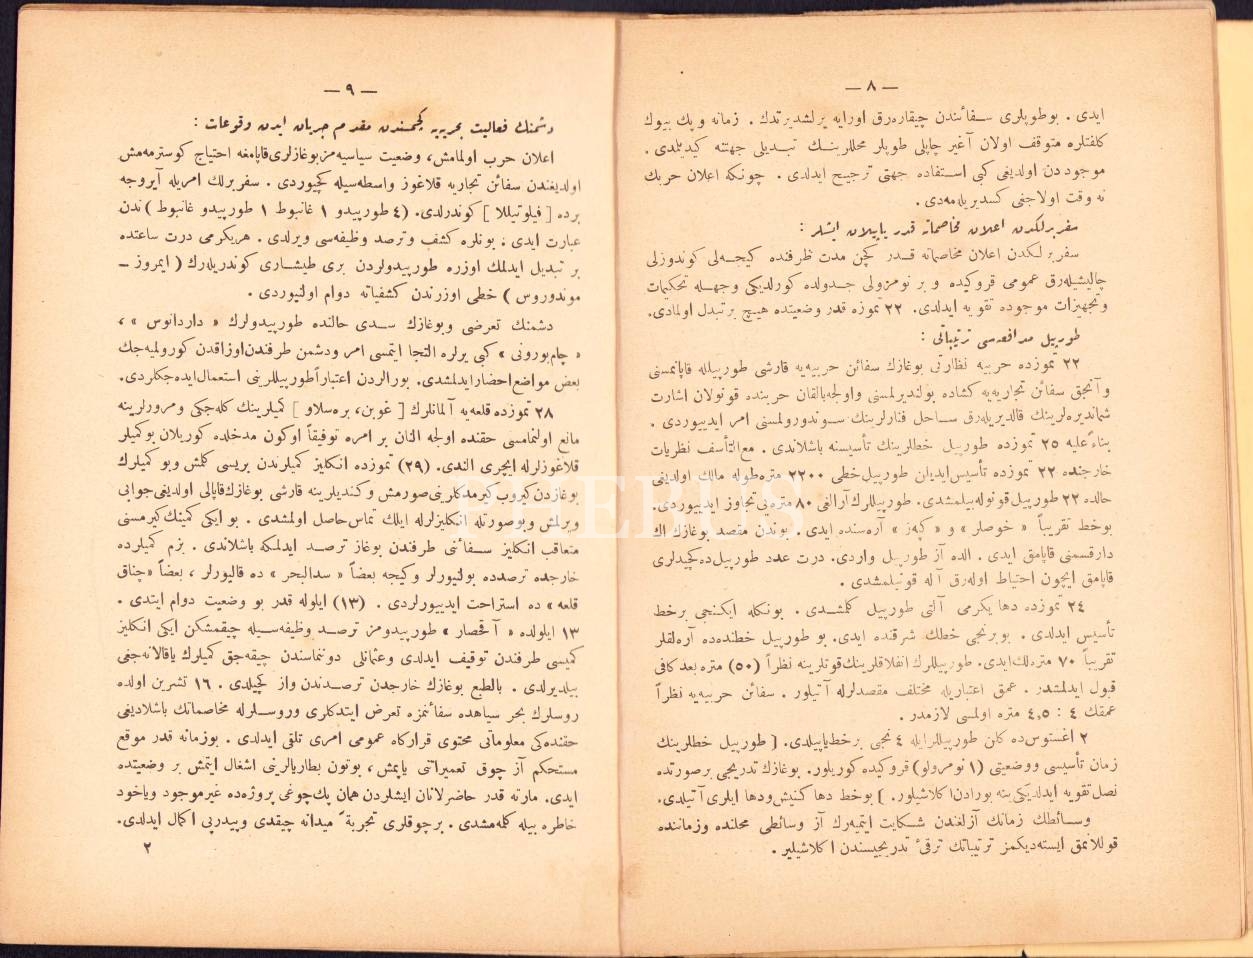 — ٨ —
ایدی . بوطوپلری سفائندن چیقاره‌رق اورایه یرلشدیرتدك . زمانه وپك بیوك
كلفتلره متوقف اولان آغیر چاپلی طوپلر محللرینك تبدیلی جهتنه كیدیلدی .
موجوددن اولدیغی كبی استفاده جهتی ترجیح ایدلدی . چونكه اعلان حربك
نه وقت اولاجغی كسدیریله‌مه‌دی .
سفربرلكدن اعلان مخاصماته قدر یاپیلان ایشلر :
سفربرلكدن اعلان مخاصماته قدر كچن مدت ظرفنده كیجه‌لی كوندوزلی
چالیشیله‌رق عمومی قروكیده و بر نومرولی جدولده كورلدیكی وجهله تحكیمات
وتجهیزات موجوده تقویه ایدلدی. ٢٢ تموزه قدر وضعیتده هیچ بر تبدل اولمادی.
طورپیل مدافعه‌سی ترتیباتی :
٢٢ تموزده حربیه نظارتی بوغازك سفائن حربیه‌یه قارشی طورپیلله قاپانمسنی
وآنجق سفائن تجاریه‌یه كشاده بولندیرلمسنی واولجه بالقان حربنده قونولان اشارت
شماندیره‌لرینك قالدیریله‌رق ساحل فنارلرینك سوندورولمسنی امر ایدییوردی .
بناءً علیه ٢٥ تموزده طورپیل خطلرینك تأسیسنه باشلاندی . مع‌التأسف نظریات
خارجنده ٢٢ تموزده تأسیس ایدیلن طورپیل خطی ٢٢٠٠ متره طوله مالك اولدیغی
حالده ٢٢ طورپیل قونوله‌بیلمشدی. طورپیللرك آرالغی ٨٠ متره‌یی تجاوز ایدییوردی.
بوخط تقریباً « خوصلر » و « كپز » آره‌سنده ایدی . بوندن مقصد بوغازك اك
دار قسمنی قاپامق ایدی . الده آز طورپیل واردی. درت عدد طورپیل ده كچیدلری
قاپامق ایچون احتیاط اوله‌رق آله قونیلمشدی .
٢٤ تموزده دها یكرمی آلتی طورپیل كلمشدی . بونكله ایكنجی برخط
تأسیس ایدلدی . بو برنجی خطك شرقنده ایدی. بو طورپیل خطنده‌ده آره‌لقلر
تقریباً ٧٠ متره‌لك ایدی. طورپیللرك انفلاقلرینك قوتلرینه نظراً (٥٠) متره بعد كافی
قبول ایدلمشدر . عمق اعتباریله مختلف مقصدلرله آتیلور . سفائن حربیه‌یه نظراً
عمقك ٤ : ٤,٥ متره اولمسی لازمدر .
٢ اغستوس‌ده كلن طورپیللر ایله ٤ نجی برخط یاپیلدی. [ طورپیل خطلرینك
زمان تأسیسی ووضعیتی (١ نومرولو) قروكیده كوریلور. بوغازك تدریجی برصورتده
نصل تقویه ایدلدیكی ینه بورادن اكلاشیلور. ] بوخط دها كنیش ودها ایلری آتیلدی.
وسائطك زمانك آزلغندن شكایت ایتمیه‌رك آز وسائطی محلنده وزماننده
قوللانمق ایسته‌دیكمز ترتیباتك ترقیٔ تدریجیسندن اكلاشیلیر .
— ٩ —
دشمنك فعالیت بحریه‌یه كچمسندن مقدم جریان ایدن وقوعات :
اعلان حرب اولمامش، وضعیت سیاسیه‌مز بوغازلری قاپامغه احتیاج كوسترمه‌مش
اولدیغندن سفائن تجاریه قلاغوز واسطه‌سیله كچیوردی . سفربرلك امریله آیروجه
برده [ فیلوتیللا ] كوندرلدی. (٤ طورپیدو ١ غانبوط ١ طورپیدو غانبوط ) ندن
عبارت ایدی . بونلره كشف وترصد وظیفه‌سی ویرلدی . هر یكرمی درت ساعتده
بر تبدیل ایدلمك اوزره طورپیدولردن بری طیشاری كوندریله‌رك ( ایمروز —
موندوروس ) خطی اوزرندن كشفیاته دوام اولنیوردی .
دشمنك تعرضی وبوغازك سدی حالنده طورپیدولرك « داردانوس » ،
« چام‌بورونی » كبی یرلره التجا ایتمسی امر ودشمن طرفندن اوزاقدن كورولمیه‌جك
بعض مواضع احضار ایدلمشدی. بورالردن اعتباراً طورپیللرینی استعمال ایده‌جكلردی.
٢٨ تموزده قلعه‌یه آلمانلرك [ غوبن، بره‌سلاو ] كمیلرینك كله‌جكی ومرورلرینه
مانع اولنمامسی حقنده اولجه النان بر امره توفیقاً اوكون مدخلده كوریلان بوكمیلر
قلاغوزلرله ایچری الندی. (٢٩) تموزده انكلیز كمیلرندن بریسی كلمش وبو كمیلرك
بوغازدن كیروب كیرمدكلرینی صورمش وكندیلرینه قارشی بوغازك قاپالی اولدیغی جوابی
ویرلمش وبوصورتله انكلیزلرله ایلك تماس حاصل اولمشدی . بو ایكی كمینك كیرمسنی
متعاقب انكلیز سفائنی طرفندن بوغاز ترصد ایدلمكه باشلاندی . بزم كمیلرده
خارجده ترصدده بولنیورلر وكیجه بعضاً « سدالبحر » ده قالیورلر ، بعضاً «چناق
قلعه» ده استراحت ایدییورلردی . (١٣) ایلوله قدر بو وضعیت دوام ایتدی .
١٣ ایلولده « آقحصار » طورپیدومز ترصد وظیفه‌سیله چیقمشكن ایكی انكلیز
كمیسی طرفندن توقیف ایدلدی وعثمانلی دونماسندن چیقه‌جق كمیلرك یاقالانه‌جغی
بیلدیرلدی . بالطبع بوغازك خارجدن ترصدندن واز كچیلدی . ١٦ تشرین اولده
روسلرك بحر سیاهده سفائنمزه تعرض ایتدكلری وروسلرله مخاصماتك باشلادیغی
حقنده‌كی معلوماتی محتوی قراركاه عمومی امری تلقی ایدلدی . بوزمانه قدر موقع
مستحكم آز چوق تعمیراتنی یاپمش، بوتون بطاریالرینی اشغال ایتمش بر وضعیتده
ایدی. مارته قدر حاضرلانان ایشلردن همان پك چوغی پروژه‌ده غیرموجود ویاخود
خاطره بیله كلمه‌مشدی . برچوقلری تجربهٔ میدانه چیقدی وپیدرپی اكمال ایدلدی.
٢
PHEBUS